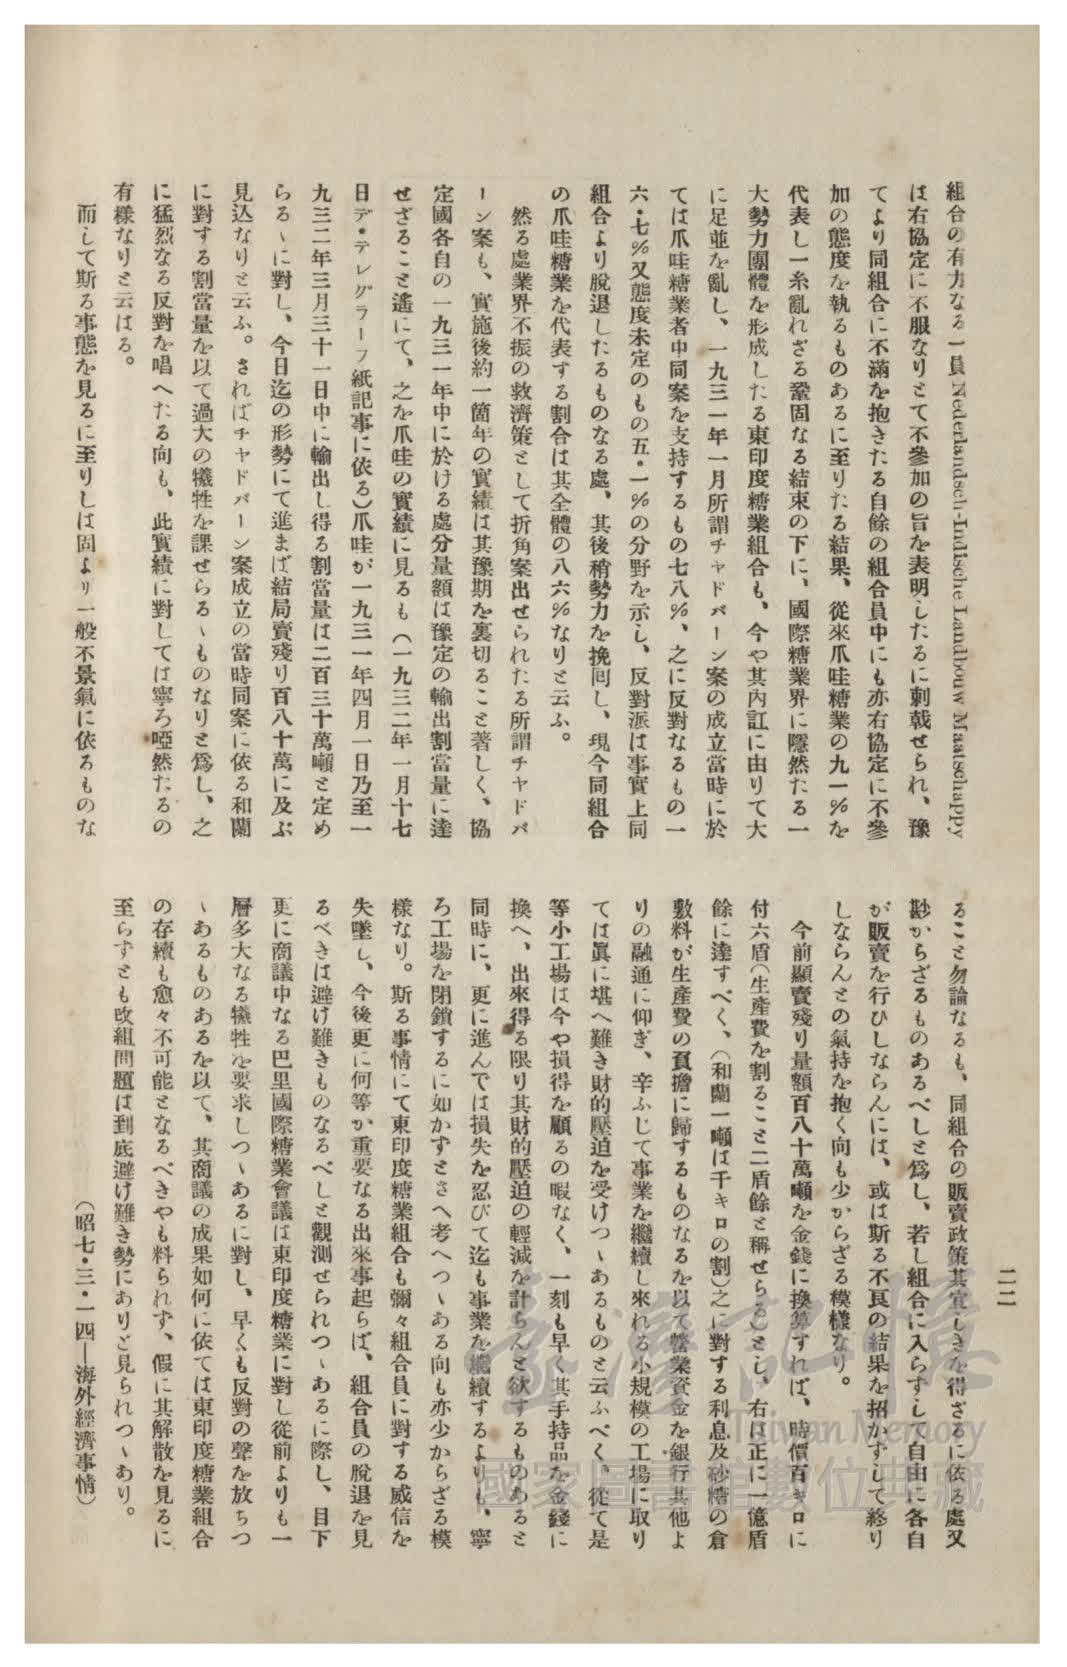 組合の有力なる一員 Nederlandsch-Indische Landbouw Maatschappy
は右協定に不服なりとて不參加の旨を表明したるに刺戟せられ、豫
てより同組合に不滿を抱きたる自餘の組合員中にも亦右協定に不參
加の態度を執るものあるに至りたる結果、從來爪哇糖業の九一%を
代表し一糸亂れざる鞏固なる結束の下に、國際糖業界に隱然たる一
大勢力團體を形成したる東印度糖業組合も、今や其内訌に由りて大
に足並を亂し、一九三一年一月所謂チャドバーン案の成立當時に於
ては爪哇糖業者中同案を支持するもの七八%、之に反對なるもの一
六・七%又態度未定のもの五・一%の分野を示し、反對派は事實上同
組合より脱退したるものなる處、其後稍勢力を挽囘し、現今同組合
の爪哇糖業を代表する割合は其全體の八六%なりと云ふ。
然る處業界不振の救濟策として折角案出せられたる所謂チャドバ
ーン案も、實施後約一箇年の實績は其豫期を裏切ること著しく、協
定國各自の一九三一年中に於ける處分量額は豫定の輸出割當量に達
せざること遙にて、之を爪哇の實績に見るも(一九三二年一月十七
日デ・テレグラーフ紙記事に依る)爪哇が一九三一年四月一日乃至一
九三二年三月三十一日中に輸出し得る割當量は二百三十萬噸と定め
らるゝに對し、今日迄の形勢にて進まば結局賣殘り百八十萬に及ぶ
見込なりと云ふ。さればチャドバーン案成立の當時同案に依る和蘭
に對する割當量を以て過大の犧牲を課せらるゝものなりと爲し、之
に猛烈なる反對を唱へたる向も、此實績に對しては寧ろ啞然たるの
有樣なりと云はる。
而して斯る事態を見るに至りしは固より一般不景氣に依るものな
ること勿論なるも、同組合の販賣政策其宜しきを得ざるに依る處又
尠からざるものあるべしと爲し、若し組合に入らずして自由に各自
が販賣を行ひしならんには、或は斯る不良の結果を招かずして終り
しならんとの氣持を抱く向も少からざる模樣なり。
今前顯賣殘り量額百八十萬噸を金錢に換算すれば、時價百キロに
付六盾(生産費を割ること二盾餘と稱せらる)とし、右は正に一億盾
餘に達すべく、(和蘭一噸は千キロの割)之に對する利息及砂糖の倉
敷料が生産費の負擔に歸するものなるを以て營業資金を銀行其他よ
りの融通に仰ぎ、辛ふじて事業を繼續し來れる小規模の工場に取り
ては眞に堪へ難き財的壓迫を受けつゝあるものと云ふべく、從て是
等小工場は今や損得を顧るの暇なく、一刻も早く其手持品を金錢に
換へ、出來得る限り其財的壓迫の輕減を計らんと欲するものあると
同時に、更に進んでは損失を忍びて迄も事業を繼續するよりも、寧
ろ工場を閉鎖するに如かずとさへ考へつゝある向も亦少からざる模
樣なり。斯る事情にて東印度糖業組合も彌々組合員に對する威信を
失墜し、今後更に何等か重要なる出來事起らば、組合員の脱退を見
るべきは避け難きものなるべしと觀測せられつゝあるに際し、目下
更に商議中なる巴里國際糖業會議は東印度糖業に對し從前よりも一
層多大なる犧牲を要求しつゝあるに對し、早くも反對の聲を放ちつ
ゝあるものあるを以て、其商議の成果如何に依ては東印度糖業組合
の存續も愈々不可能となるべきやも料られず、假に其解散を見るに
至らずとも改組問題は到底避け難き勢にありと見られつゝあり。
(昭七・三・一四―海外經濟事情)
二二
臺灣記憶
Taiwan Memory
國家圖書館數位典藏